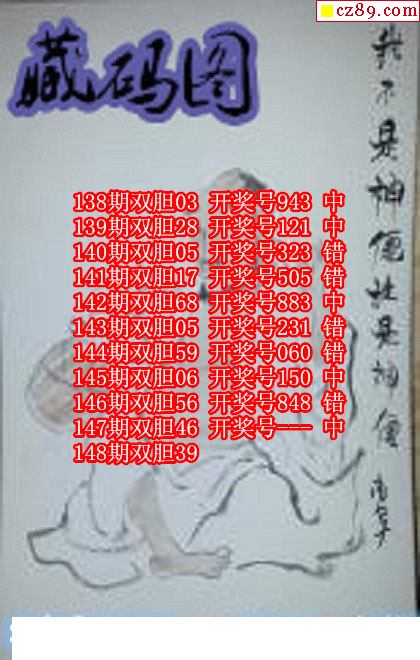 cz89.com
藏码图
我不是神
但杜是神僊
138期双胆03 开奖号943 中
139期双胆28 开奖号121 中
140期双胆05 开奖号323 错
141期双胆17 开奖号505 错
142期双胆68 开奖号883 中
143期双胆05 开奖号231 错
144期双胆59 开奖号060 错
145期双胆06 开奖号150 中
146期双胆56 开奖号848 错
147期双胆46 开奖号--- 中
148期双胆39